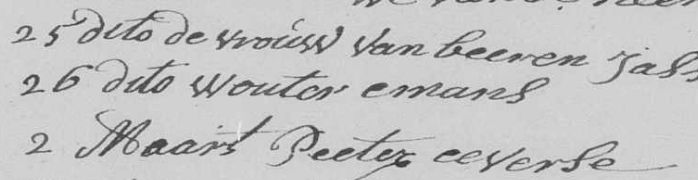 25 dito de vroúw van beeren
26 dito wouter emans
2 Maart Peeter eeverse